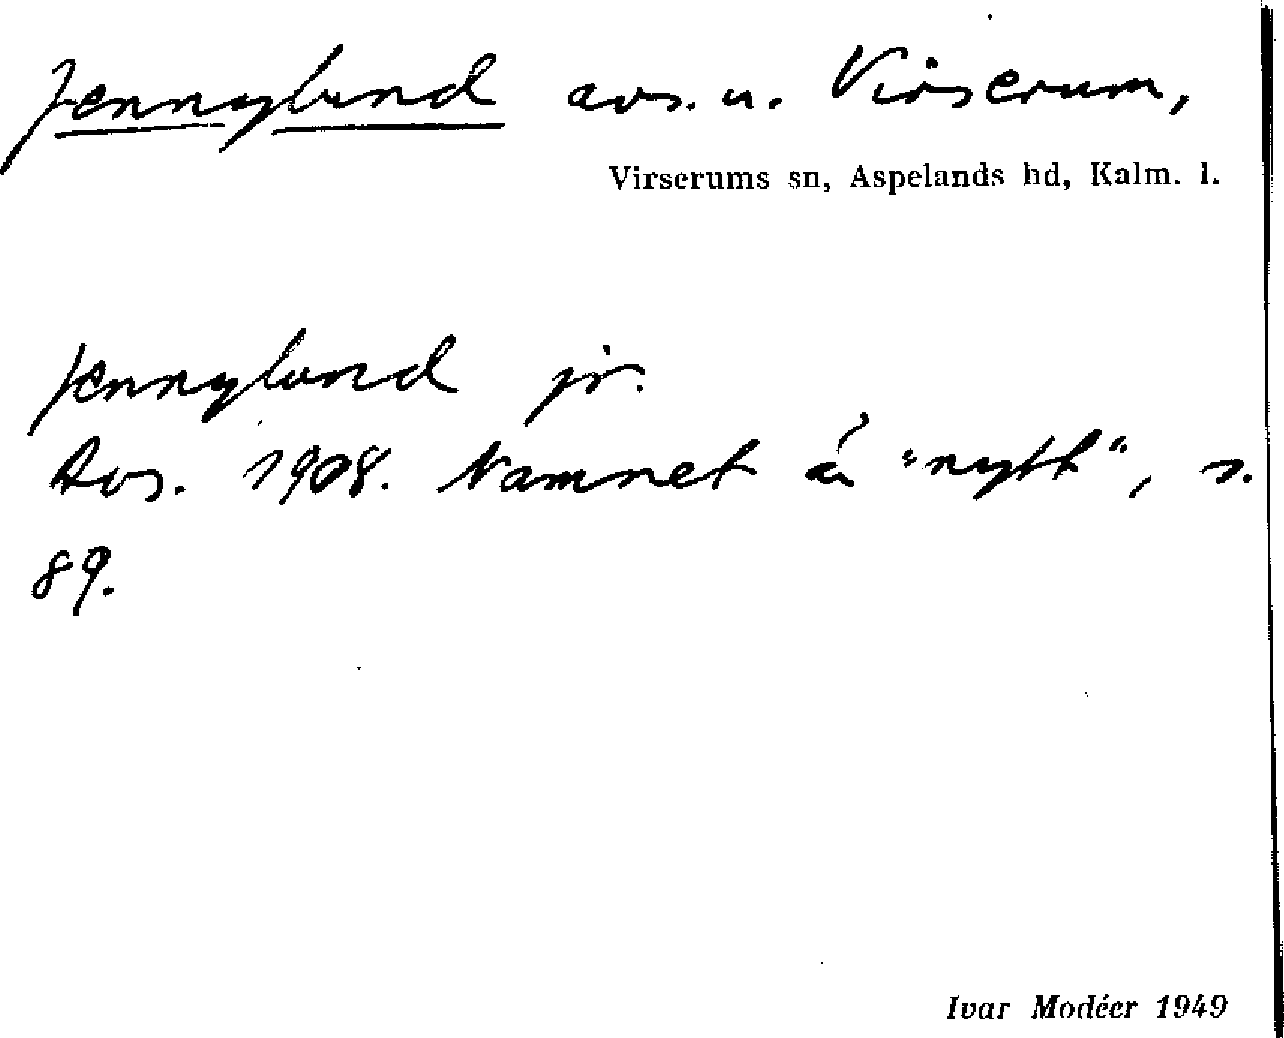 Jennylund avs. u. Virserum,
Virserums sn, Aspelands hd, Kalm. l.
Jennylund jr.
Avs. 1908. Namnet är "nytt", s.
89.
Ivar Modéer 1949